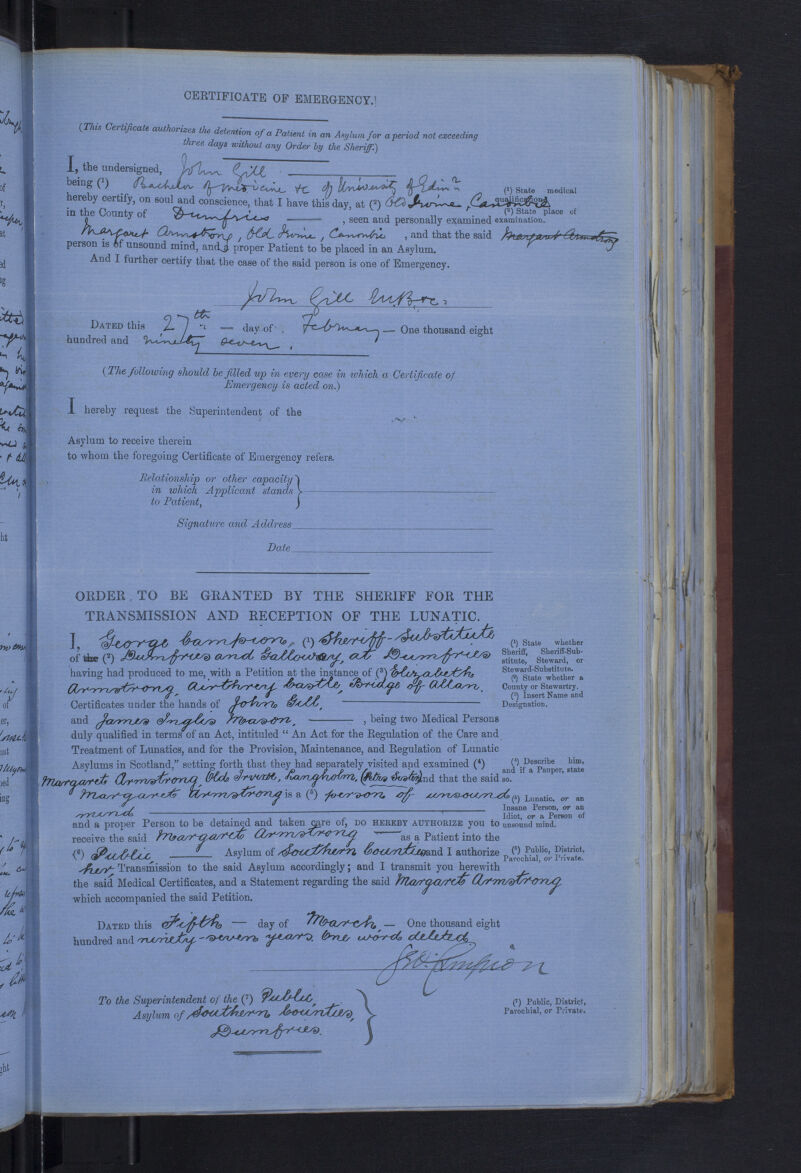 CERTIFICATE OF EMERGENCY.¹
(This Certificate authorizes the detention of a Patient in an Asylum for a period not exceeding
three days without any Order by the Sheriff.)
I, the undersigned, John Gill
being (¹) Bachelor of Medicine &c of University of Edinr
(¹) State medical
qualifications.
hereby certify, on soul and conscience, that I have this day, at (²) Old Irvine, Canonbie
(²) State place of
examination.
in the County of Dumfries , seen and personally examined
Margaret Armstrong, Old Irvine, Canonbie , and that the said Margaret Armstrong
person is of unsound mind, and a proper Patient to be placed in an Asylum.
And I further certify that the case of the said person is one of Emergency.
John Gill M.B. &c.
DATED this 27th — day of February — One thousand eight
hundred and ninety seven.
(The following should be filled up in every case in which a Certificate of
Emergency is acted on.)
I hereby request the Superintendent of the
Asylum to receive therein
to whom the foregoing Certificate of Emergency refers.
Relationship or other capacity
in which Applicant stands
to Patient,
Signature and Address
Date
ORDER TO BE GRANTED BY THE SHERIFF FOR THE
TRANSMISSION AND RECEPTION OF THE LUNATIC.
I, George Campion, (¹) Sheriff-Substitute
of the (²) Dumfries and Galloway, at Dumfries
having had produced to me, with a Petition at the instance of (³) Elizabeth
Armstrong, Airthrey Castle, Bridge of Allan,
(¹) State whether
Sheriff, Sheriff-Sub-
stitute, Steward, or
Steward-Substitute.
(²) State whether a
County or Stewartry.
(³) Insert Name and
Designation.
Certificates under the hands of John Gill,
and James Inglis Mason, , being two Medical Persons
duly qualified in terms of an Act, intituled “ An Act for the Regulation of the Care and
Treatment of Lunatics, and for the Provision, Maintenance, and Regulation of Lunatic
Asylums in Scotland,” setting forth that they had separately visited and examined (⁴)
(⁴) Describe him,
and if a Pauper, state
so.
Margaret Armstrong, Old Irvine, Langholm, and that the said
Margaret Armstrong is a (⁵) person of unsound
mind
(⁵) Lunatic, or an
Insane Person, or an
Idiot, or a Person of
unsound mind.
and a proper Person to be detained and taken care of, DO HEREBY AUTHORIZE you to
receive the said Margaret Armstrong as a Patient into the
(⁶) Public Asylum of Southern Counties and I authorize
(⁶) Public, District,
Parochial, or Private.
her Transmission to the said Asylum accordingly; and I transmit you herewith
the said Medical Certificates, and a Statement regarding the said Margaret Armstrong
which accompanied the said Petition.
DATED this Fifth — day of March, — One thousand eight
hundred and ninety-seven years. One word deleted.
Geo. Campion
To the Superintendent of the (⁷) Public,
Asylum of Southern Counties,
Dumfries.
(⁷) Public, District,
Parochial, or Private.